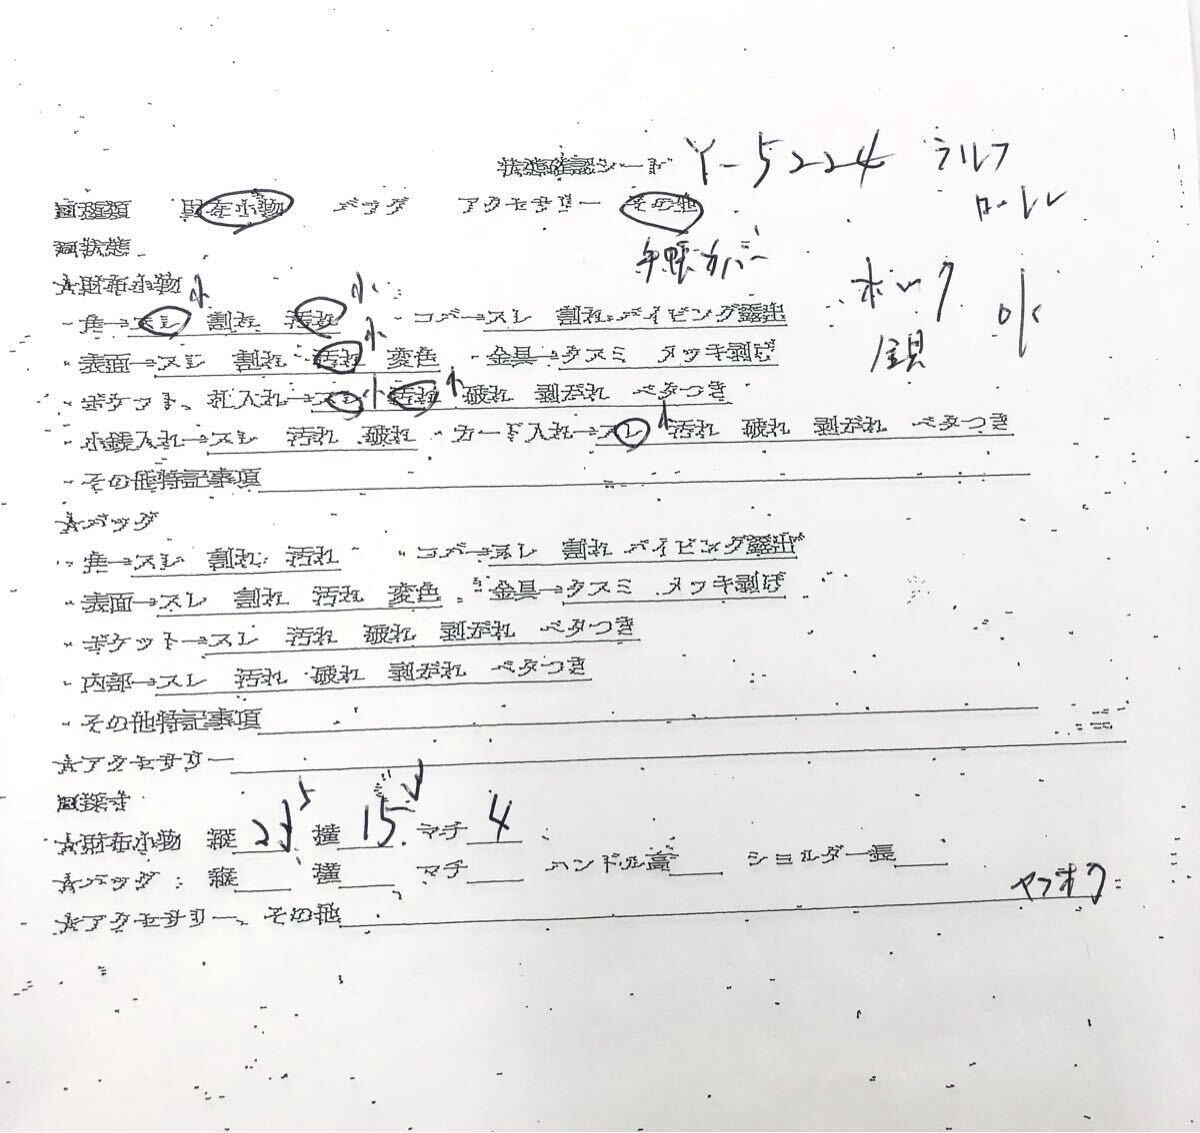 状態確認シート Y-5224 ラルフ
ローレン
■種類 財布小物 バッグ アクセサリー その他
■状態 手帳カバー
★財布小物 小 小 ホック
・角→スレ 割れ 汚れ ・コバ→スレ 割れ パイピング露出
小
・表面→スレ 割れ 汚れ 変色 ・金具→クスミ メッキ剥げ
・ポケット、札入れ→スレ 小 汚れ 小 破れ 剥がれ ベタつき
・小銭入れ→スレ 汚れ 破れ ・カード入れ→スレ 小 汚れ 破れ 剥がれ ベタつき
・その他特記事項
★バッグ
・角→スレ 割れ 汚れ ・コバ→スレ 割れ パイピング露出
・表面→スレ 割れ 汚れ 変色 ・金具→クスミ メッキ剥げ
・ポケット→スレ 汚れ 破れ 剥がれ ベタつき
・内部→スレ 汚れ 破れ 剥がれ ベタつき
・その他特記事項
★アクセサリー
■採寸
★財布小物 縦 横 15. マチ 4
★バッグ: 縦 横 マチ ハンドル高 ショルダー長
ヤフオク
★アクセサリー、その他